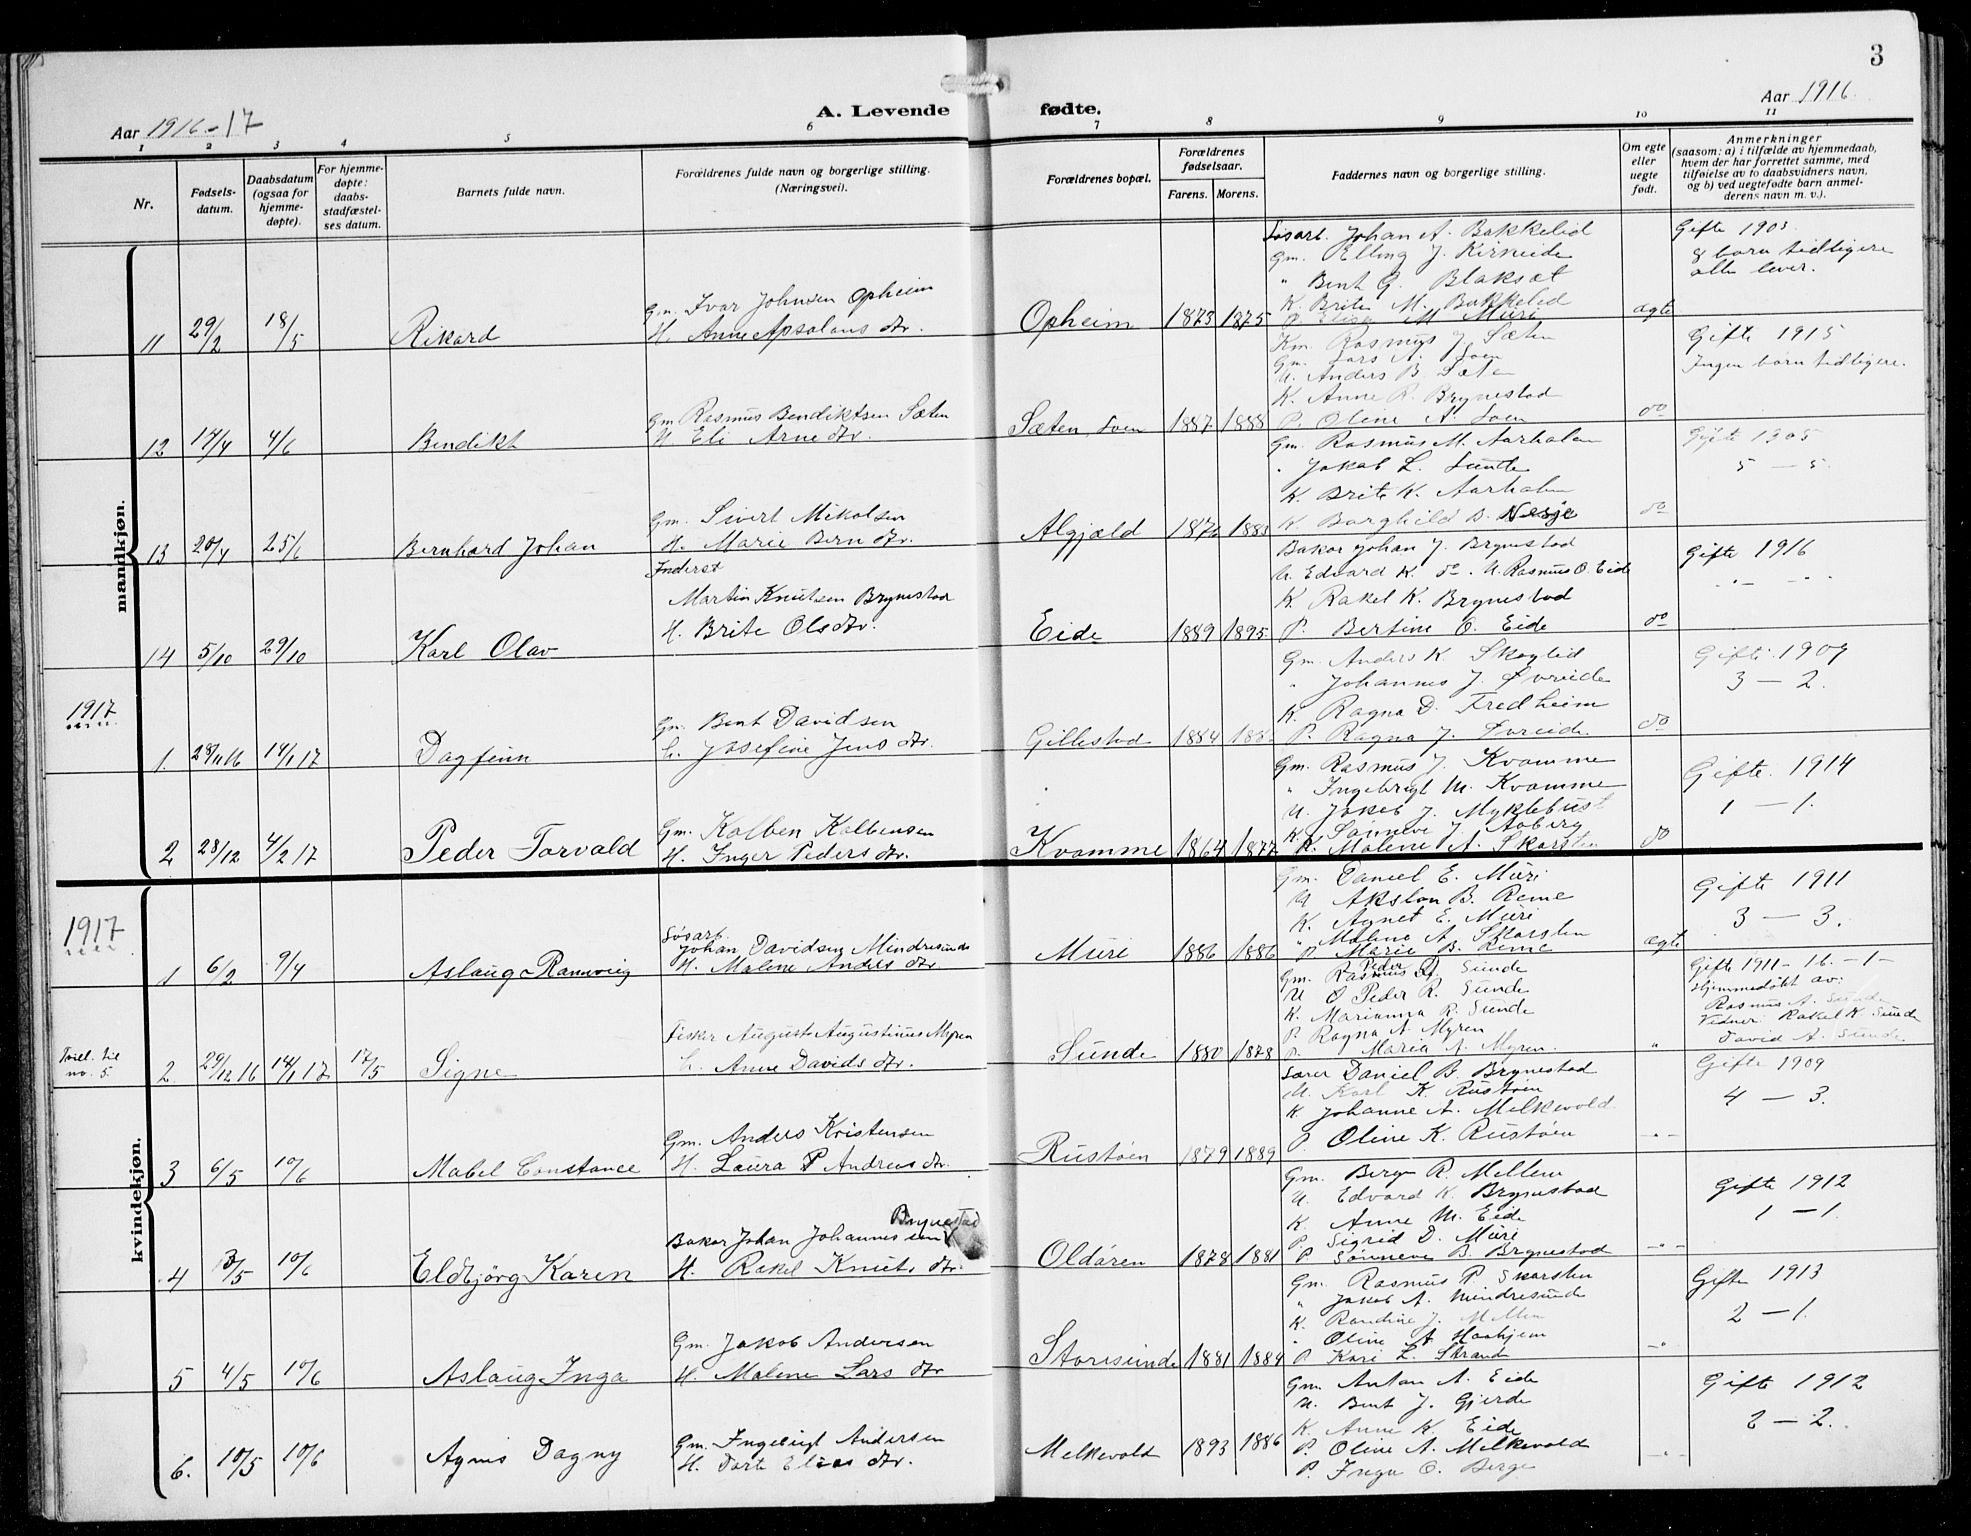 3
Aar 1916-17
A. Levende
fødte.
Aar 1916.
1 2 3 4 5 6 7 8 9 10 11
Nr.
Fødsels-
datum.
Daabsdatum
(ogsaa for
hjemme-
døpte).
For hjemme-
døpte:
daabs-
stadfæstel-
ses datum.
Barnets fulde navn.
Forældrenes fulde navn og borgerlige stilling.
(Næringsvei).
Forældrenes bopæl.
Forældrenes
fødselsaar.
Farens. Morens.
Faddernes navn og borgerlige stilling.
Om egte
eller
uegte
født.
Anmerkninger
(saasom: a) i tilfælde av hjemmedaab,
hvem der har forrettet samme, med
tilføielse av to daabsvidners navn,
og b) ved uegtefødte barn anmel-
derens navn m. v.).
mandkjøn.
11 29/2 18/5 Rikard
Gm. Ivar Johnsen Opheim
H. Anne Apsalons dtr.
Opheim 1873 1875
Løsarb. Johan A. Bakkelid
Gm. Elling J. Kirkeide
" Bent G. Blaksæt
K. Brite M. Bakkelid
P. Elisa M. Muri
ægte
Gifte 1903
8 born tidligere
alle lever.
12 14/4 4/6 Bendikt
Gm Rasmus Bendiktsen Sæten
H Eli Arne dtr.
Sæten, Loen 1887 1888
Km. Rasmus J. Sæten
Gm. Lars A. Loen
U. Anders B. Sæten
K. Anne R. Brynestad
P. Oline A. Loen
do
Gifte 1915
Ingen born tidligere.
13 20/4 25/6 Bernhard Johan
Gm. Sivert Mikalsen
H. Marie Bern dtr.
Algjæld 1876 1883
Gm. Rasmus M. Aarholen
" Jakob L. Sunde
K. Brite K. Aarholen
K. Borghild D. Nesje
do
Gifte 1905
5 — 5.
14 5/10 29/10 Karl Olav
Inderst
Martin Knutsen Brynestad
H. Brite Ols dtr.
Eide 1889 1895
Bakar Johan J. Brynestad
U. Edvard K. do. U. Rasmus O. Eide
K. Rakel K. Brynestad
P. Bertine O. Eide
do
Gifte 1916
1917
1. 28/11 16 14/1 17 Dagfinn
Gm. Bent Davidsen
H. Josefine Jens dtr.
Gillestad 1884
Gm. Anders K. Skoglid
" Johannes J. Øvreide
K. Ragna D. Fredheim
P. Ragna J. Øvreide
do
Gifte 1909
3 — 2.
2 28/12 4/2 17 Peder Torvald
Gm. Kolben Kolbensen
H. Inger Peders dtr.
Kvamme 1864 1877
Gm. Rasmus J. Kvamme
" Ingebrigt M. Kvamme
U. Jakob J. Myklebust
K. Sønneve J. Aaberg
K. Malene A. Skarsten
do
Gifte. 1914
1 — 1.
kvindekjøn.
1917
1 6/2 9/4 Aslaug Rannveig
Løsarb.
Johan Davidsen Mindresunde
H. Malene Anders dtr.
Muri 1886 1886
Gm. Daniel E. Muri
U Akslon B. Reme
K. Agnet E. Muri
" Malene A. Skarsten
P. Marie B. Reme
ægte
Gifte 1911
3 — 3.
Tvil. til
no. 5.
2 29/12 16 14/1 17 17/5 Signe
Fisker August Augustinus Myren
H. Anne Davids dtr.
Sunde 1880 1878
Gm. Rasmus A. Sunde
U Peder R. Sunde
K. Marianna R. Sunde
P. Ragna A. Myren
P. Maria A. Myren.
"
Gifte 1911 - 16. - 1 -
Hjemmedøbt av:
Rasmus A. Sunde
Vidner: Rakel K. Sunde
David A. Sunde.
3 6/5 10/6 Mabel Constance
Gm. Anders Kristensen
H. Laura P Andreas dtr.
Rustøen 1879 1889
Lærer Daniel B. Brynestad
U. Karl K. Rustøen
K. Johanne A. Melkevold.
P. Oline K. Rustøen
- " -
Gifte 1909
4 — 3.
4 3/5 10/6 Eldbjörg Karen
Brynestad
Bakar Johan Johannessen
H. Rakel Knuts dtr.
Oldøren 1878 1881
Gm. Berge R. Mellem
U. Edvard K. Brynestad
K. Anne M. Eide
P. Sigrid D. Muri
P. Sønneve B. Brynestad
- " -
Gifte 1912
1 — 1.
5 4/5 10/6 Aslaug Inga
Gm. Jakob Andersen
H. Malene Lars dtr
Storesunde 1881 1884
Gm. Rasmus P. Skarsten
" Jakob A. Mindresunde
K. Randine J. Mellem
" Oline A Haahjem
P. Kari L. Strand
- " -
Gifte 1913
2 — 1.
6. 10/5 10/6 Agnes Dagny
Gm. Ingebrigt Andersen
H. Dorte Elias dtr.
Melkevold 1893 1886
Gm. Anton A. Eide
U. Bent J. Gjerde
K. Anne K. Eide
P. Oline A. Melkevold
P. Inga O. Berge
- " -
Gifte 1912
2 — 2.